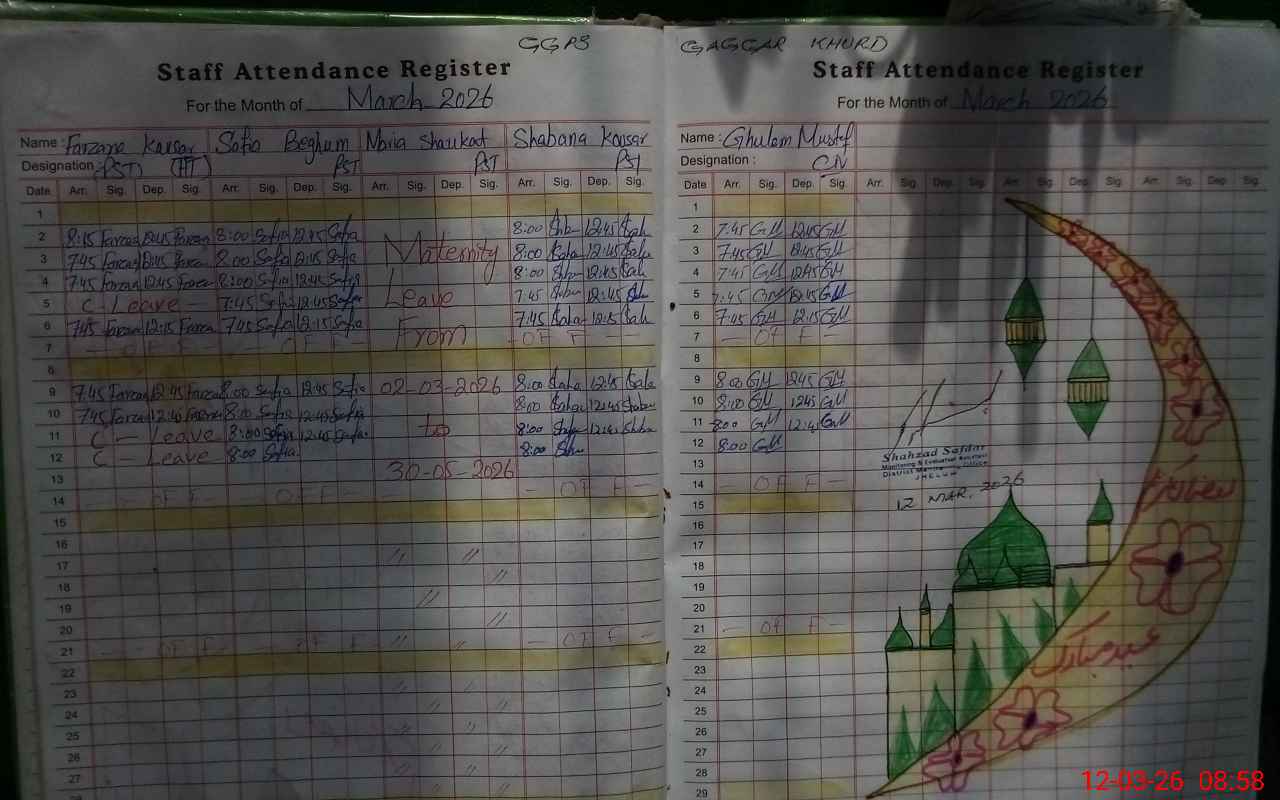 GGPS
Staff Attendance Register
For the Month of March 2026
Name : Farzana Kausar Safia Beghum Maria Shaukat Shabana Kausar
Designation : PST (HT) PST PST PST
Date Arr. Sig. Dep. Sig. Arr. Sig. Dep. Sig. Arr. Sig. Dep. Sig. Arr. Sig. Dep. Sig.
1
2 8:15 12:45 8:00 Safia 12:45 Safia 8:00 12:45
3 7:45 12:45 8:00 Safia 12:45 Safia Maternity 8:00 12:45
4 7:45 12:45 8:00 Safia 12:45 Safia 8:00 12:45
5 C - Leave - 7:45 Safia 12:45 Safia Leave 7:45 12:45
6 7:45 12:15 7:45 Safia 12:15 Safia From 7:45 12:15
7 - OFF - - OFF - - OFF -
8
9 7:45 12:45 8:00 Safia 12:45 Safia 02-03-2026 8:00 12:45
10 7:45 8:00 Safia 12:45 Safia 8:00 12:45
11 C - Leave 8:00 Safia 12:45 Safia to 8:00 12:45
12 C - Leave 8:00 Safia 8:00
13 30-05-2026
14 - OFF - - OFF - - OFF -
15
16
17
18
19
20
21 - OFF - - OFF - - OFF -
22
23
24
25
26
27
28
GAGGAR KHURD
Staff Attendance Register
For the Month of March 2026
Name : Ghulam Mustaf
Designation :
Date Arr. Sig. Dep. Sig. Arr. Sig. Dep. Sig. Arr. Sig. Dep. Sig. Arr. Sig. Dep. Sig.
1
2 7:45 GM 12:45 GM
3 7:45 GM 12:45 GM
4 7:45 GM 12:45 GM
5 7:45 GM 12:45 GM
6 7:45 GM 12:15 GM
7 - OFF -
8
9 8:00 GM 12:45 GM
10 8:00 GM 12:45 GM
11 8:00 GM 12:45 GM
12 8:00 GM
13
14 - OFF -
15
16
17
18
19
20
21 - OFF -
22
23
24
25
26
27
28
29
Shahzad Safdar
Monitoring & Evaluation Assistant
JHELUM
12 MAR. 2026
عید مبارک
12-03-26 08:58